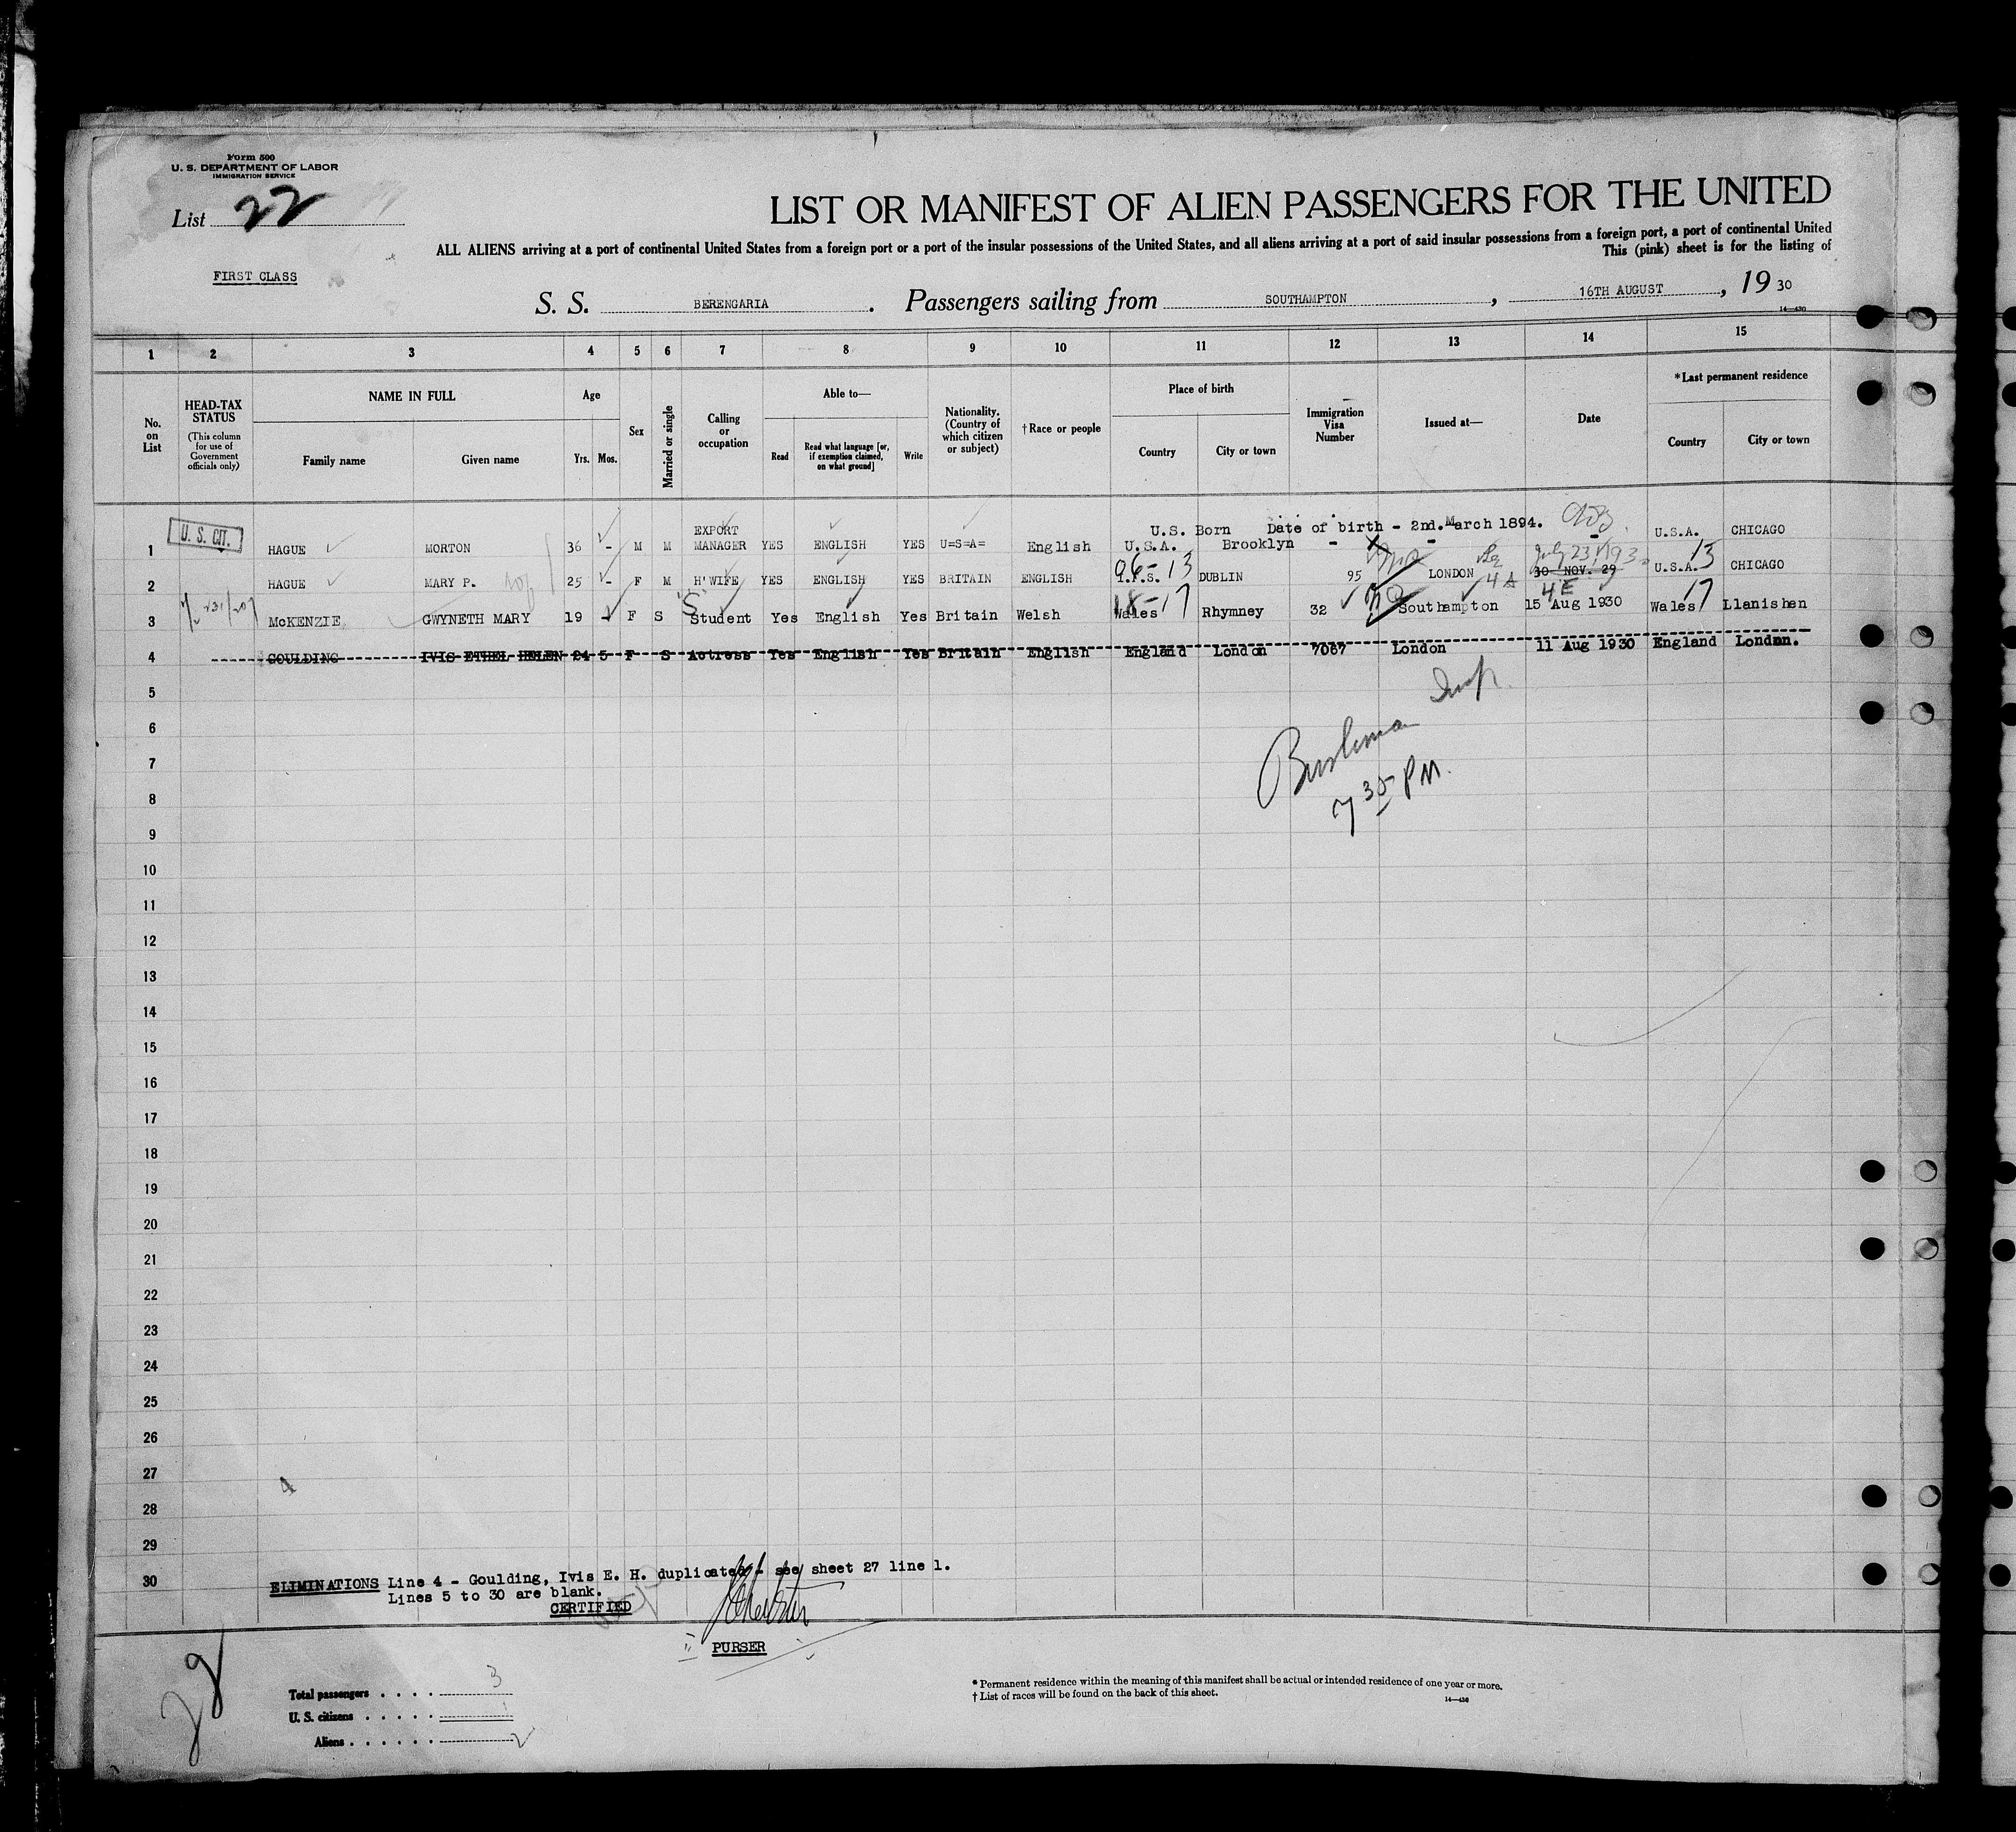 Form 500
U. S. DEPARTMENT OF LABOR
IMMIGRATION SERVICE
List 22
LIST OR MANIFEST OF ALIEN PASSENGERS FOR THE UNITED
ALL ALIENS arriving at a port of continental United States from a foreign port or a port of the insular possessions of the United States, and all aliens arriving at a port of said insular possessions from a foreign port, a port of continental United
This (pink) sheet is for the listing of
FIRST CLASS
S. S. BERENGARIA. Passengers sailing from SOUTHAMPTON, 16TH AUGUST, 1930
14—430
1 2 3 4 5 6 7 8 9 10 11 12 13 14 15
No. on List
HEAD-TAX STATUS
(This column for use of Government officials only)
NAME IN FULL
Family name
Given name
Age
Yrs. Mos.
Sex
Married or single
Calling or occupation
Able to—
Read
Read what language [or, if exemption claimed, on what ground]
Write
Nationality. (Country of which citizen or subject)
†Race or people
Place of birth
Country
City or town
Immigration Visa Number
Issued at—
Date
*Last permanent residence
Country
City or town
U.S. Born Date of birth - 2nd. March 1894.
1 U. S. CIT. HAGUE MORTON 36 - M M EXPORT MANAGER YES ENGLISH YES U=S=A= English U.S.A. Brooklyn - - - U.S.A. CHICAGO
July 23, 1930
2 HAGUE MARY P. 25 - F M H'WIFE YES ENGLISH YES BRITAIN ENGLISH 06-13 DUBLIN 95 LONDON 30 NOV. 29 U.S.A. 13 CHICAGO
4E
3 McKENZIE GWYNETH MARY 19 - F S Student Yes English Yes Britain Welsh 18-17 Wales Rhymney 32 Southampton 15 Aug 1930 Wales 17 Llanishen
4 GOULDING IVIS ETHEL HELEN 24 5 F S Actress Yes English Yes Britain English England London 7067 London 11 Aug 1930 England London.
5
6
7
8
9
10
11
12
13
14
15
16
17
18
19
20
21
22
23
24
25
26
27
28
29
30
Insp.
7 30 PM.
4
ELIMINATIONS Line 4 - Goulding, Ivis E. H. duplicated - see sheet 27 line 1.
Lines 5 to 30 are blank.
CERTIFIED
PURSER
Total passengers 3
U. S. citizens 1
Aliens 2
* Permanent residence within the meaning of this manifest shall be actual or intended residence of one year or more.
† List of races will be found on the back of this sheet.
14—430